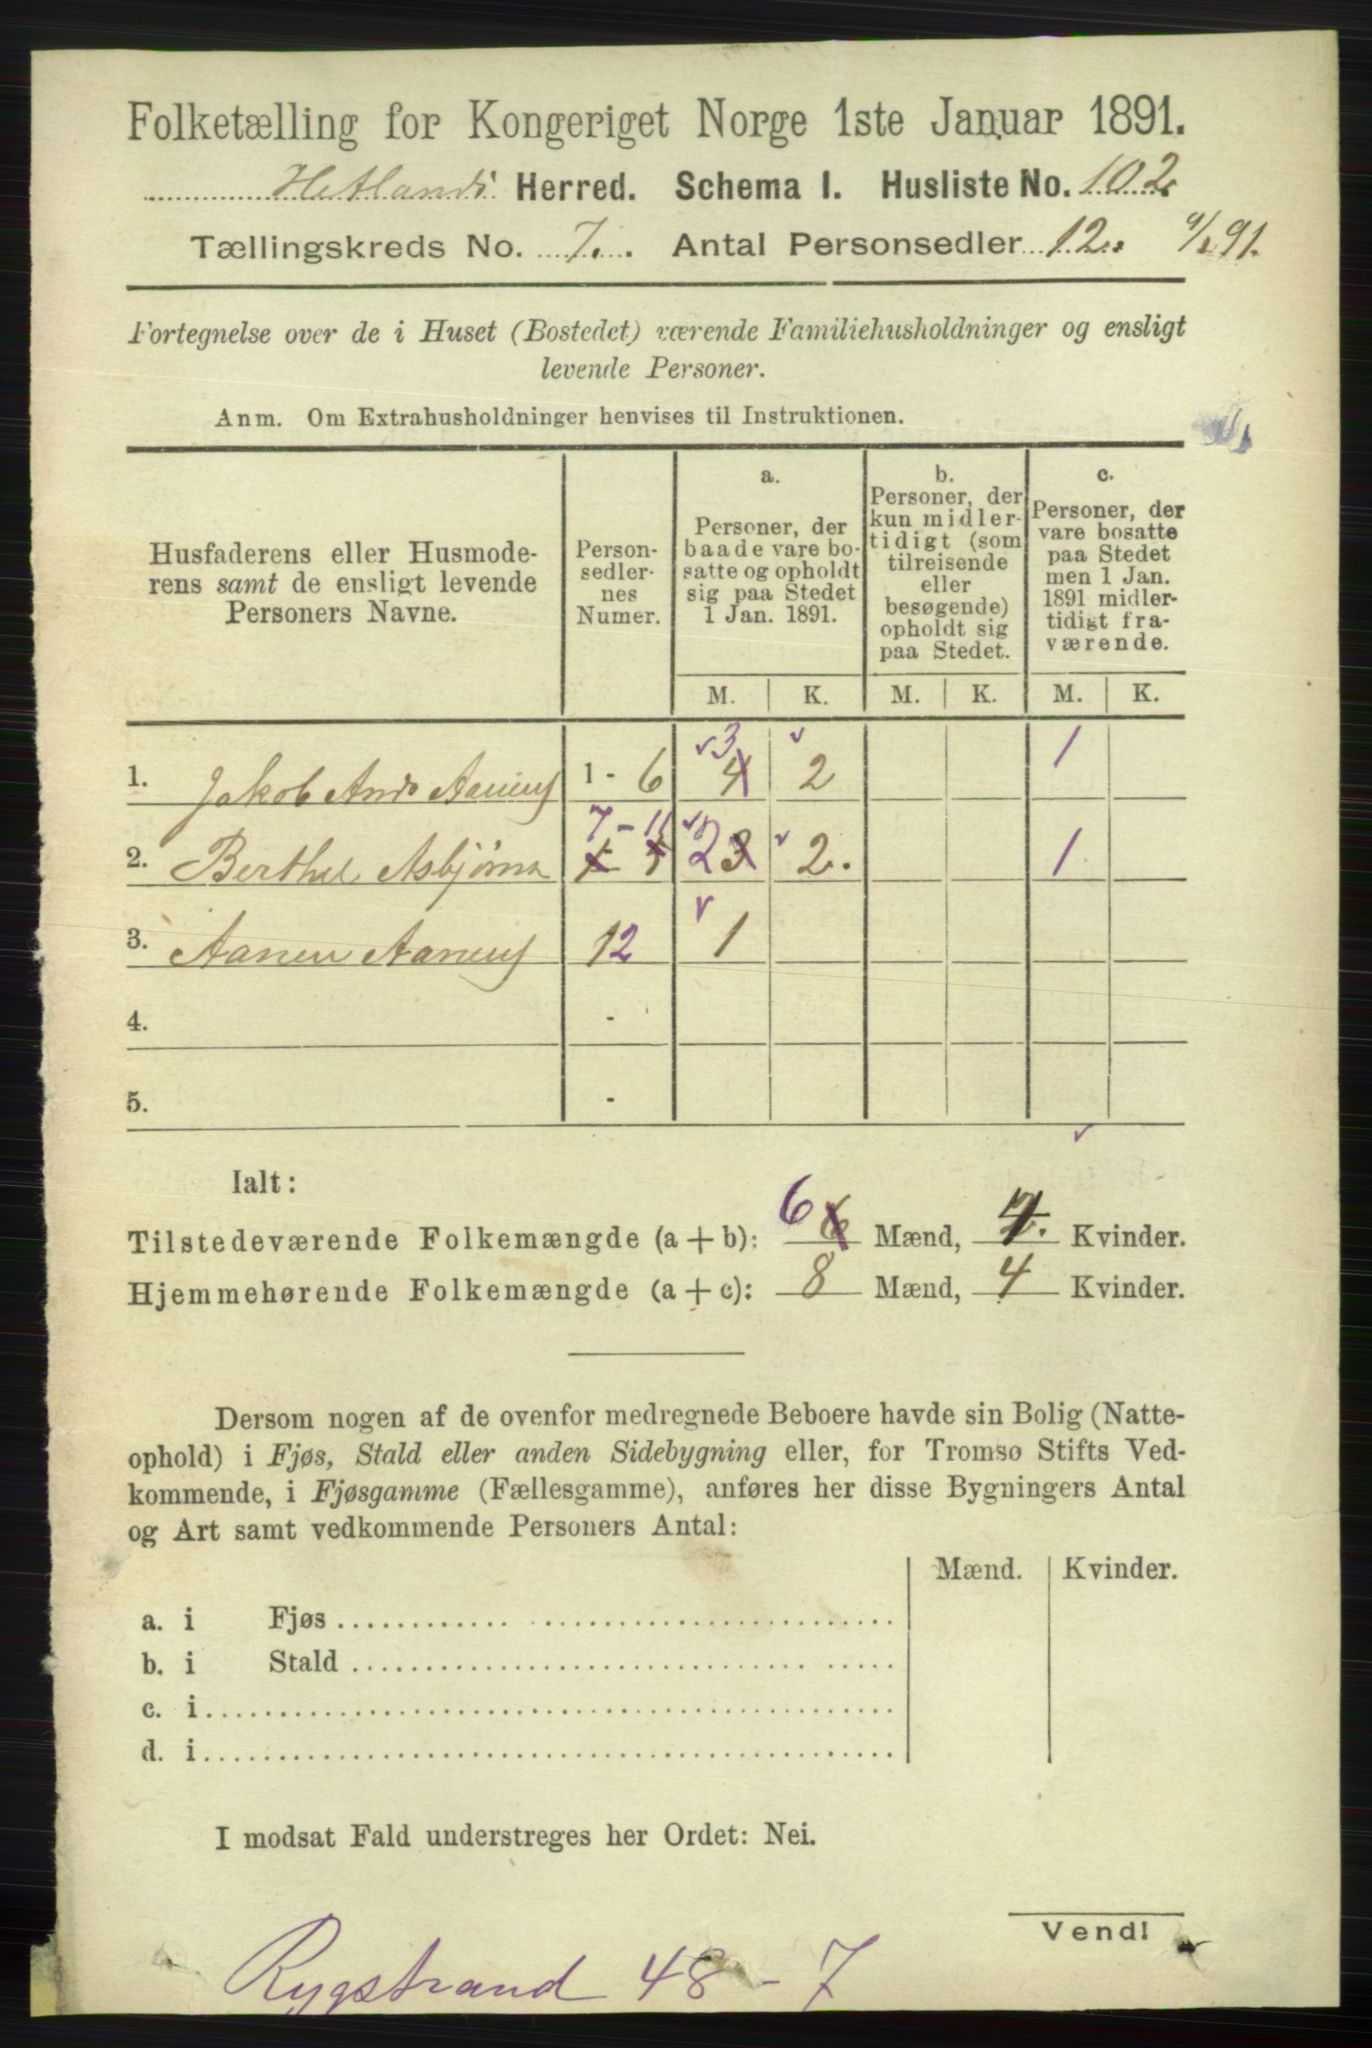 Folketælling for Kongeriget Norge 1ste Januar 1891.
Hetlands Herred. Schema I. Husliste No. 102
Tællingskreds No. 7. Antal Personsedler 12. 9/1 91.
Fortegnelse over de i Huset (Bostedet) værende Familiehusholdninger og ensligt
levende Personer.
Anm. Om Extrahusholdninger henvises til Instruktionen.
Husfaderens eller Husmode-
rens samt de ensligt levende
Personers Navne.
Person-
sedler-
nes
Numer.
a.
Personer, der
baade vare bo-
satte og opholdt
sig paa Stedet
1 Jan. 1891.
b.
Personer, der
kun midler-
tidigt (som
tilreisende
eller
besøgende)
opholdt sig
paa Stedet.
c.
Personer, der
vare bosatte
paa Stedet
men 1 Jan.
1891 midler-
tidigt fra-
værende.
M. K. M. K. M. K.
1. Jakob Ands Aanens 1 - 6 3 4 2 1
7 - 11
2. Berthel Asbjørns 1 5 2 3 2. 1
3. Aanen Aanens 12 1
4. -
5. -
Ialt:
Tilstedeværende Folkemængde (a + b): 6 6 Mænd, 4. Kvinder.
Hjemmehørende Folkemængde (a + c): 8 Mænd, 4 Kvinder.
Dersom nogen af de ovenfor medregnede Beboere havde sin Bolig (Natte-
ophold) i Fjøs, Stald eller anden Sidebygning eller, for Tromsø Stifts Ved-
kommende, i Fjøsgamme (Fællesgamme), anføres her disse Bygningers Antal
og Art samt vedkommende Personers Antal:
Mænd. Kvinder.
a. i Fjøs
b. i Stald
c. i
d. i
I modsat Fald understreges her Ordet: Nei.
Vend!
Rygstrand 48 - 7